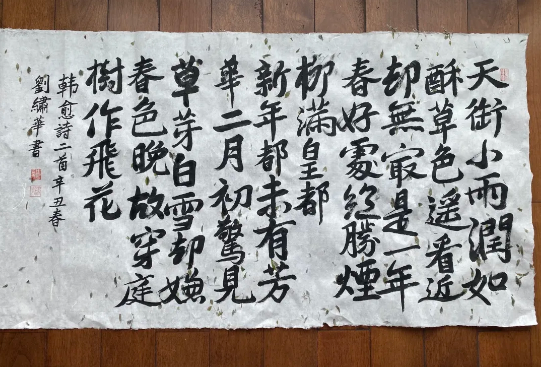 天街小雨潤如
酥草色遥看近
却無最是一年
春好處絶勝煙
柳滿皇都
新年都未有芳
華二月初驚見
草芽白雪却嫌
春色晚故穿庭
樹作飛花
韓愈詩二首辛丑春
劉繡華書